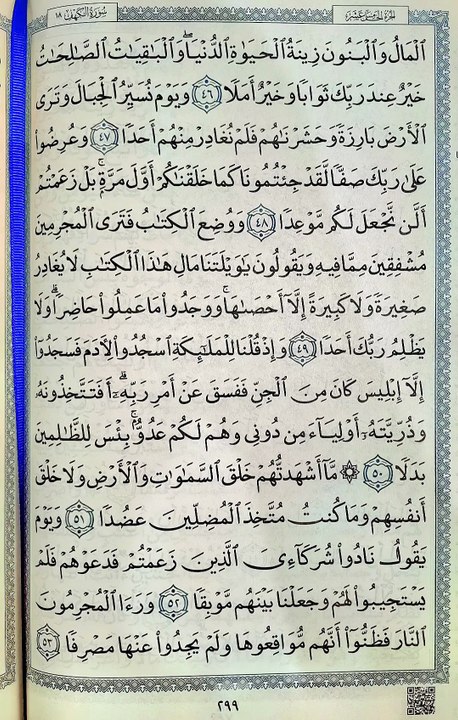 سُورَةُ الكَهْفِ ١٨
الجُزْءُ الخَامِسَ عَشَرَ
ٱلْمَالُ وَٱلْبَنُونَ زِينَةُ ٱلْحَيَوٰةِ ٱلدُّنْيَا ۖ وَٱلْبَٰقِيَٰتُ ٱلصَّٰلِحَٰتُ
خَيْرٌ عِندَ رَبِّكَ ثَوَابًا وَخَيْرٌ أَمَلًا ٤٦ وَيَوْمَ نُسَيِّرُ ٱلْجِبَالَ وَتَرَى
ٱلْأَرْضَ بَارِزَةً وَحَشَرْنَٰهُمْ فَلَمْ نُغَادِرْ مِنْهُمْ أَحَدًا ٤٧ وَعُرِضُوا۟
عَلَىٰ رَبِّكَ صَفًّا لَّقَدْ جِئْتُمُونَا كَمَا خَلَقْنَٰكُمْ أَوَّلَ مَرَّةٍۭ ۚ بَلْ زَعَمْتُمْ
أَلَّن نَّجْعَلَ لَكُم مَّوْعِدًا ٤٨ وَوُضِعَ ٱلْكِتَٰبُ فَتَرَى ٱلْمُجْرِمِينَ
مُشْفِقِينَ مِمَّا فِيهِ وَيَقُولُونَ يَٰوَيْلَتَنَا مَالِ هَٰذَا ٱلْكِتَٰبِ لَا يُغَادِرُ
صَغِيرَةً وَلَا كَبِيرَةً إِلَّآ أَحْصَىٰهَا ۚ وَوَجَدُوا۟ مَا عَمِلُوا۟ حَاضِرًا ۗ وَلَا
يَظْلِمُ رَبُّكَ أَحَدًا ٤٩ وَإِذْ قُلْنَا لِلْمَلَٰٓئِكَةِ ٱسْجُدُوا۟ لِءَادَمَ فَسَجَدُوٓا۟
إِلَّآ إِبْلِيسَ كَانَ مِنَ ٱلْجِنِّ فَفَسَقَ عَنْ أَمْرِ رَبِّهِۦٓ ۗ أَفَتَتَّخِذُونَهُۥ
وَذُرِّيَّتَهُۥٓ أَوْلِيَآءَ مِن دُونِى وَهُمْ لَكُمْ عَدُوٌّۢ ۚ بِئْسَ لِلظَّٰلِمِينَ
بَدَلًا ٥٠ ۞ مَّآ أَشْهَدتُّهُمْ خَلْقَ ٱلسَّمَٰوَٰتِ وَٱلْأَرْضِ وَلَا خَلْقَ
أَنفُسِهِمْ وَمَا كُنتُ مُتَّخِذَ ٱلْمُضِلِّينَ عَضُدًا ٥١ وَيَوْمَ
يَقُولُ نَادُوا۟ شُرَكَآءِىَ ٱلَّذِينَ زَعَمْتُمْ فَدَعَوْهُمْ فَلَمْ
يَسْتَجِيبُوا۟ لَهُمْ وَجَعَلْنَا بَيْنَهُم مَّوْبِقًا ٥٢ وَرَءَا ٱلْمُجْرِمُونَ
ٱلنَّارَ فَظَنُّوٓا۟ أَنَّهُم مُّوَاقِعُوهَا وَلَمْ يَجِدُوا۟ عَنْهَا مَصْرِفًا ٥٣
٢٩٩